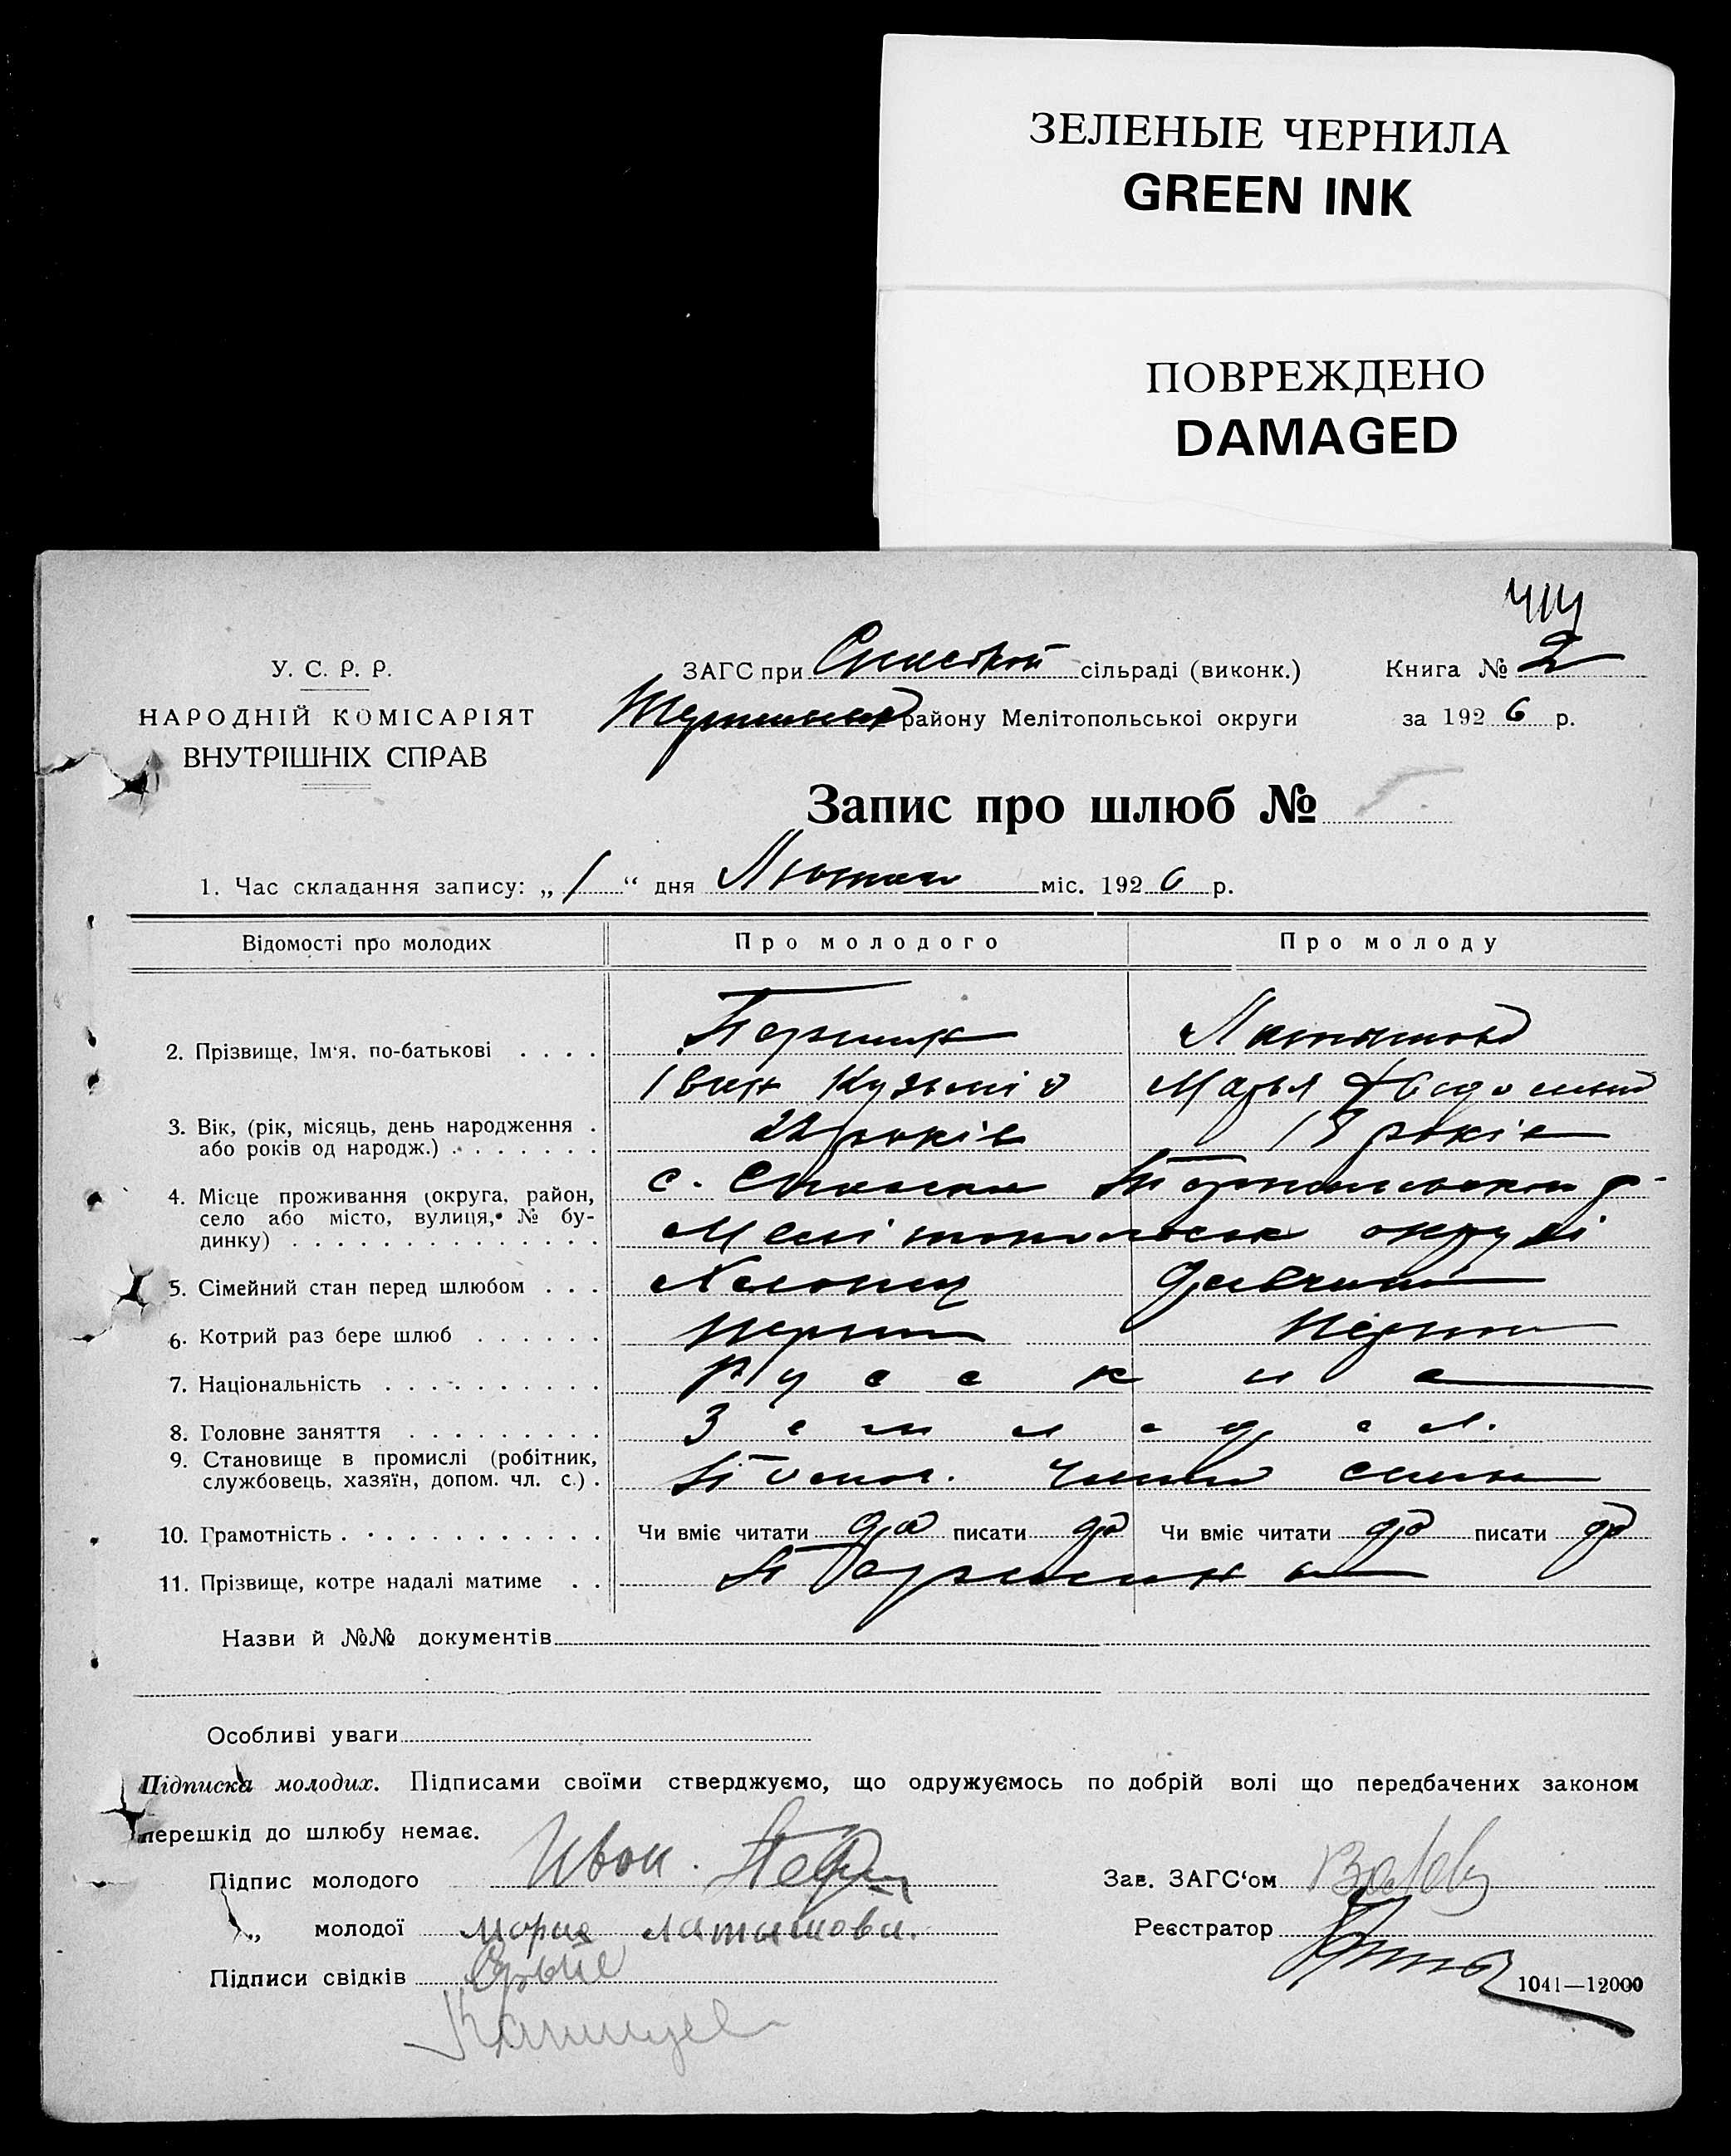 ЗЕЛЕНЫЕ ЧЕРНИЛА
GREEN INK
ПОВРЕЖДЕНО
DAMAGED
У. С. Р. Р.
НАРОДНІЙ КОМІСАРІЯТ
ВНУТРІШНІХ СПРАВ
ЗАГС при сільраді (виконк.) Книга № 2
району Мелітопольської округи за 1926 р.
Запис про шлюб №
1. Час складання запису: „ 1 “ дня Лютого міс. 1926 р.
Відомості про молодих Про молодого Про молоду
2. Прізвище, Ім'я, по-батькові . . . . Латишова
Іван Кузьмів Марья
3. Вік, (рік, місяць, день народження . або років од народж.) . . . . . . . 22 років років
4. Місце проживання (округа, район, с.
село або місто, вулиця, № бу- Мелітопольськ округи
динку) . . . . . . . . . . . . . .
5. Сімейний стан перед шлюбом . . . Хлопець Дівчина
6. Котрий раз бере шлюб . . . . . . Перший Перший
7. Національність . . . . . . . . . . русские
8. Головне заняття . . . . . . . . . Земледел.
9. Становище в промислі (робітник,
службовець, хазяїн, допом. чл. с.) . члени
10. Грамотність . . . . . . . . . . . . Чи вміє читати да писати да Чи вміє читати да писати да
11. Прізвище, котре надалі матиме . .
Назви й №№ документів
Особливі уваги
Підписка молодих. Підписами своїми стверджуємо, що одружуємось по добрій волі що передбачених законом
перешкід до шлюбу немає.
Підпис молодого Иван Зав. ЗАГС'ом
„ молодої Мория латышова. Реєстратор
Підписи свідків
1041—12000